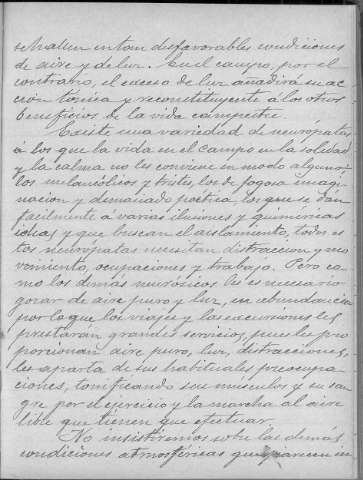 se hallen en tan desfavorables condiciones
de aire y de luz. En el campo, por el
contrario, el exceso de luz añadirá su ac
ción tónica y reconstituyente á los otros
beneficios de la vida campestre.
Existe una variedad de neurópatas
á los que la vida en el campo en la soledad
y la calma no les conviene en modo alguno:
los melancólicos y tristes, los de fogosa imagi
nacion y demasiado poética, los que se dan
facilmente á varias ilusiones y quiméricas
ideas, y que buscan el aislamiento, todos es
tos neurópatas necesitan distraccion y mo
vimiento, ocupaciones y trabajo. Pero co
mo los demás neurósicos les es necesario
gozar de aire puro y luz, en abundancia
por lo que los viajes y las excursiones les
prestarán grandes servicios, pues les pro
porcionan aire puro, luz, distracciones,
les aparta de sus habituales preocupa
ciones, tonificando sus músculos y su san
gre por el ejercicio y la marcha al aire
libre que tienen que efectuar.
No insistiremos sobre las demás
condiciones atmosféricas que parecen in